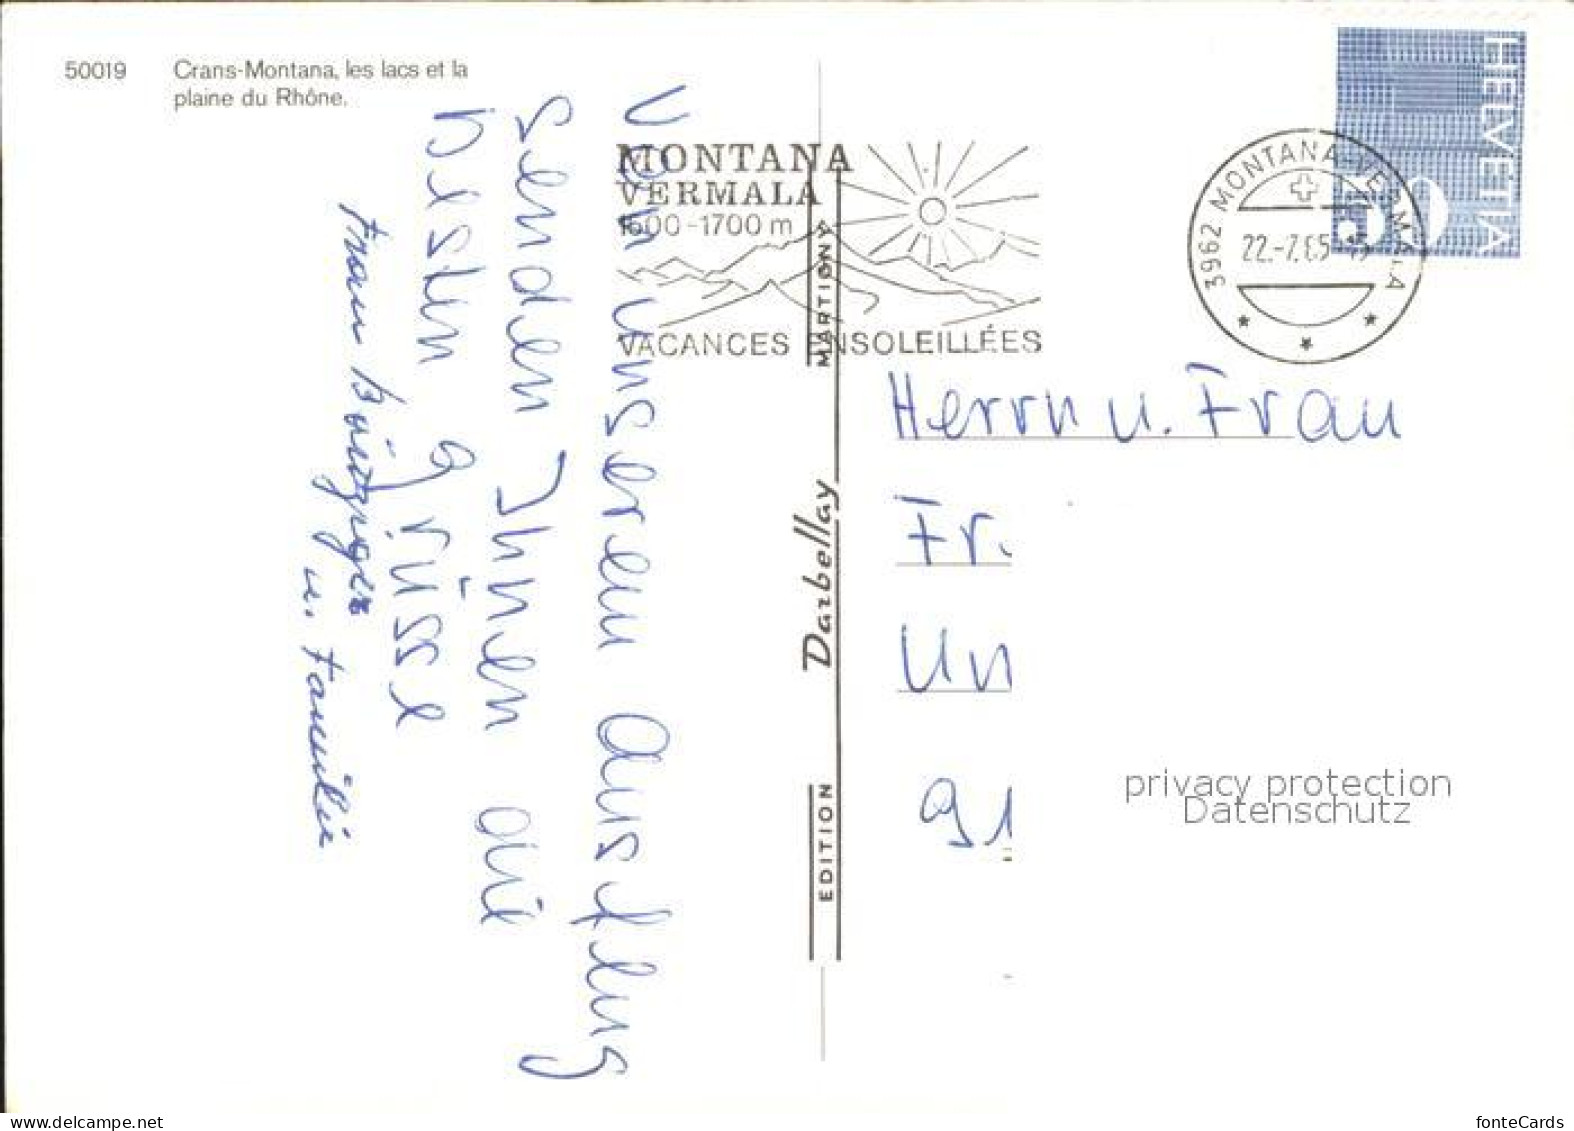 50019 Crans-Montana, les lacs et la
plaine du Rhône.
Von unserem Ausflug
senden Ihnen die
besten Grüsse
Frau
u. Familie
MONTANA
VERMALA
1600-1700 m
VACANCES ENSOLEILLÉES
EDITION Darbellay MARTIGNY
HELVETIA
50
3962 MONTANA-VERMALA
Herrn u. Frau
Fr.
Un
91
privacy protection
Datenschutz
www.delcampe.net
fonteCards